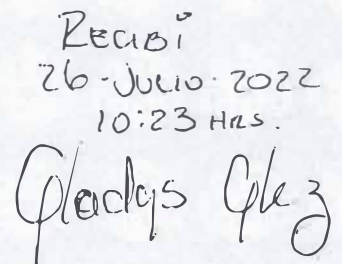 RECIBí
26-JULIO-2022
10:23 HRS.
Gladys Glez